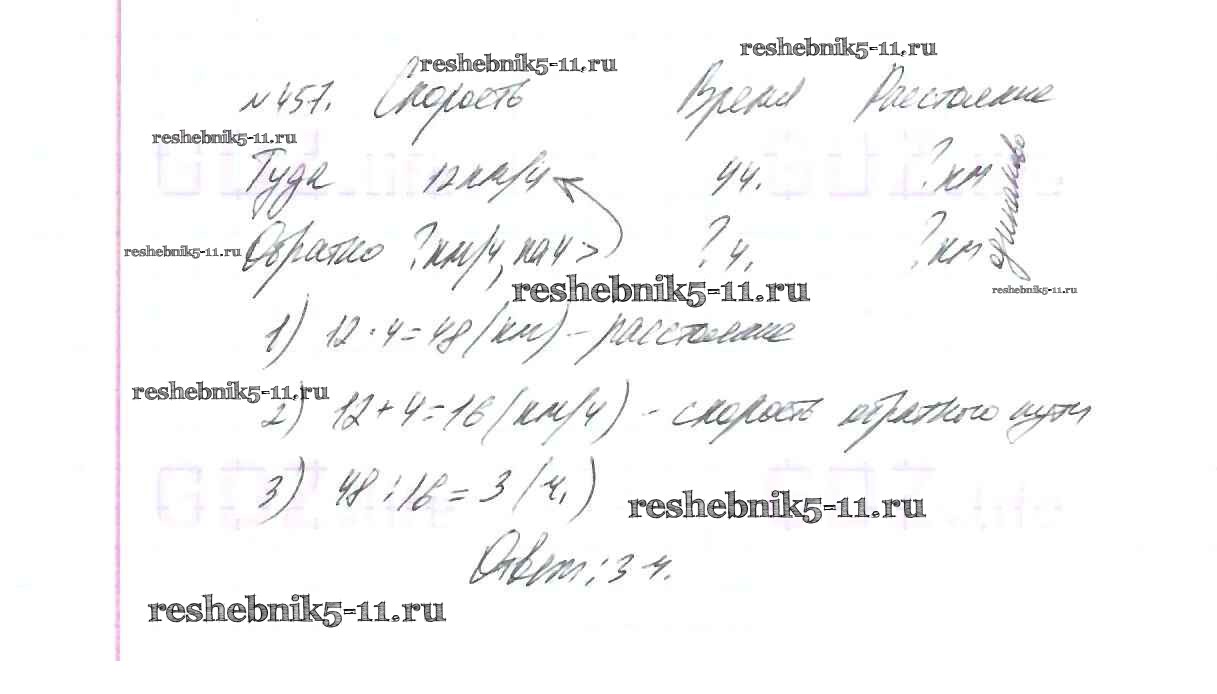 reshebnik5-11.ru
reshebnik5-11.ru
№ 457. Скорость Время Расстояние
reshebnik5-11.ru
Туда 12 км/ч 4 ч. ? км одинаково
Обратно ? км/ч, на 4 > ? ч. ? км
reshebnik5-11.ru
reshebnik5-11.ru
reshebnik5-11.ru
1) 12 · 4 = 48 (км) – расстояние
reshebnik5-11.ru
2) 12 + 4 = 16 (км/ч) – скорость обратного пути
3) 48 : 16 = 3 (ч.)
reshebnik5-11.ru
Ответ: 3 ч.
reshebnik5-11.ru